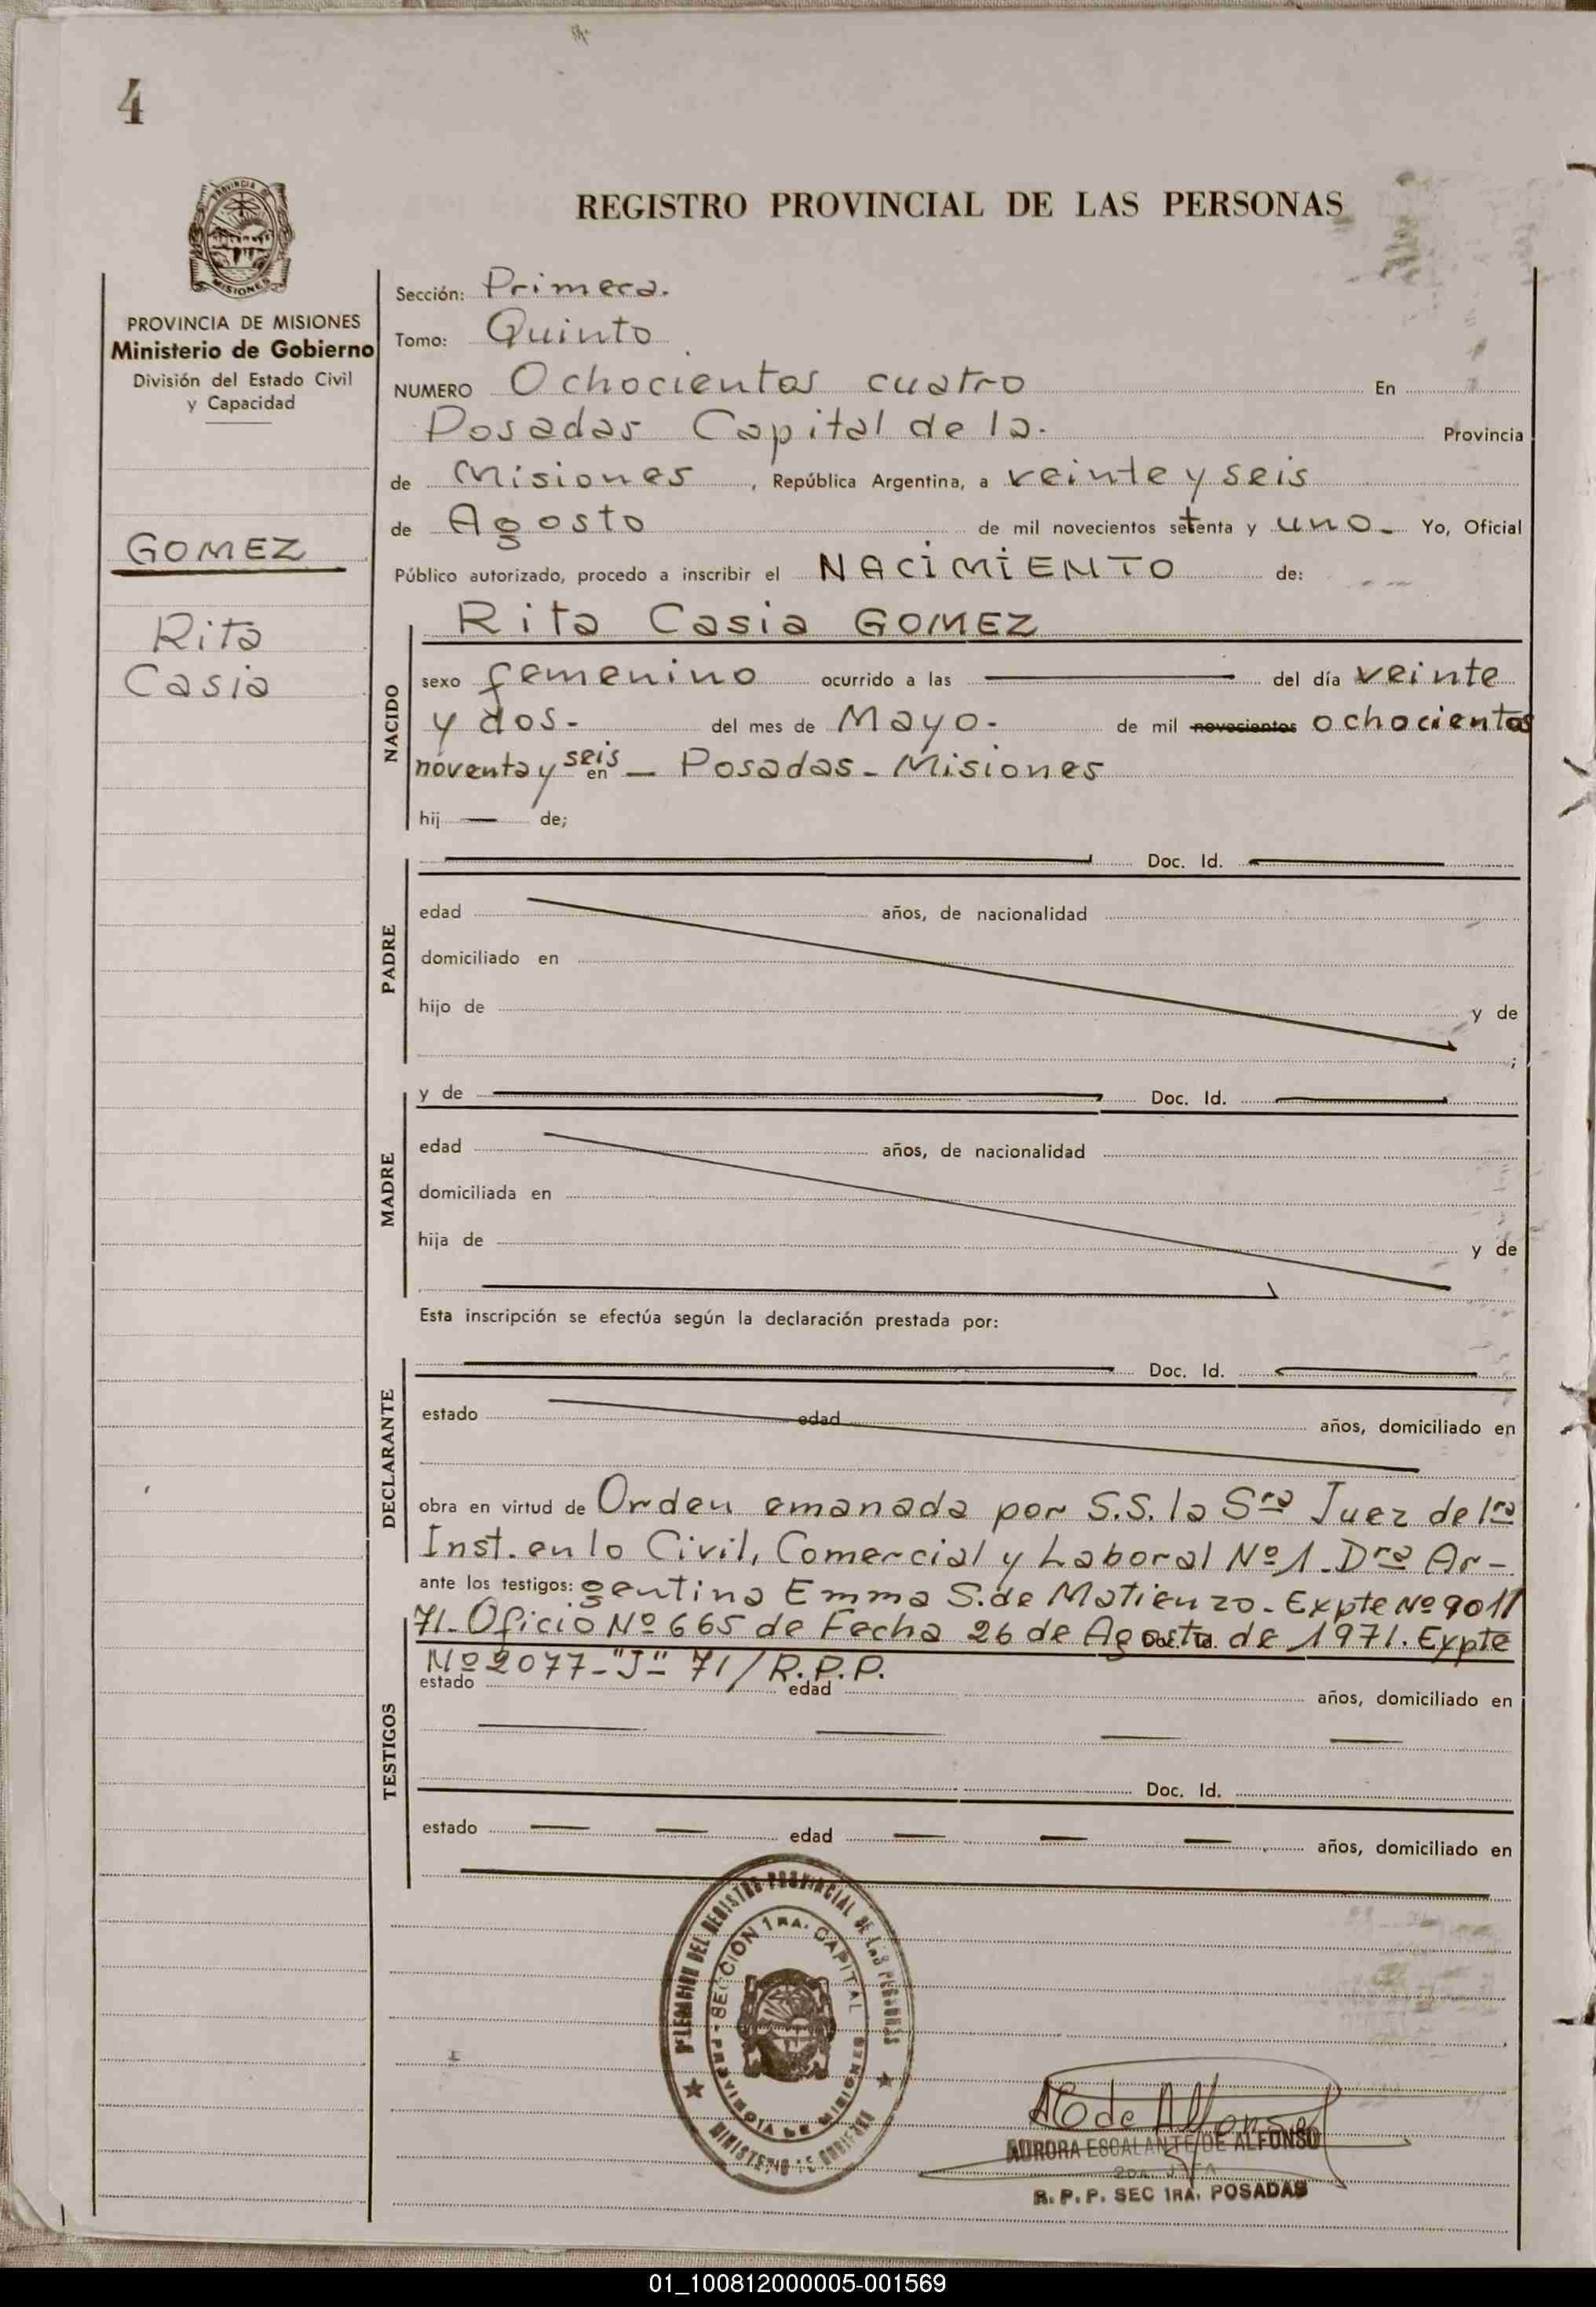 4
PROVINCIA DE
MISIONES
REGISTRO PROVINCIAL DE LAS PERSONAS
PROVINCIA DE MISIONES
Ministerio de Gobierno
División del Estado Civil
y Capacidad
GOMEZ
Rita
Casia
Sección: Primera.
Tomo: Quinto
NUMERO Ochocientos cuatro En
Posadas Capital de la. Provincia
de Misiones, República Argentina, a veinte y seis
de Agosto de mil novecientos setenta y uno- Yo, Oficial
Público autorizado, procedo a inscribir el NACIMIENTO de:
Rita Casia GOMEZ
NACIDO
sexo femenino ocurrido a las del día veinte
y dos- del mes de Mayo- de mil novecientos ochocientos
noventa y seis en - Posadas - Misiones
hij — de;
PADRE
Doc. Id.
edad años, de nacionalidad
domiciliado en
hijo de y de
;
MADRE
y de Doc. Id.
edad años, de nacionalidad
domiciliada en
hija de y de
Esta inscripción se efectúa según la declaración prestada por:
DECLARANTE
Doc. Id.
estado edad años, domiciliado en
obra en virtud de Orden emanada por S.S. la Sra Juez de 1ra
Inst. en lo Civil, Comercial y Laboral Nº 1. Dra Ar-
ante los testigos: gentina Emma S. de Matienzo. Expte Nº 901/
71. Oficio Nº 665 de Fecha 26 de Agosto de 1971. Expte
Nº 2077-"J"- 71/R.P.P.
TESTIGOS
estado edad años, domiciliado en
Doc. Id.
estado edad años, domiciliado en
DELEGACION DEL REGISTRO PROVINCIAL DE LAS PERSONAS
SECCION 1RA. CAPITAL
PROVINCIA DE MISIONES
MINISTERIO DE GOBIERNO
AE de Alfonso
AURORA ESCALANTE DE ALFONSO
2DA. JEFA
R. P. P. SEC 1RA. POSADAS
01_100812000005-001569